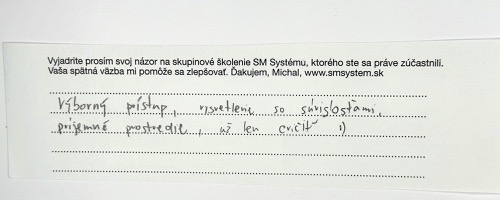 Vyjadrite prosím svoj názor na skupinové školenie SM Systému, ktorého ste sa práve zúčastnili.
Vaša spätná väzba mi pomôže sa zlepšovať. Ďakujem, Michal, www.smsystem.sk
Výborný prístup, vysvetlenie so súvislosťami,
príjemné prostredie, už len cvičiť :)